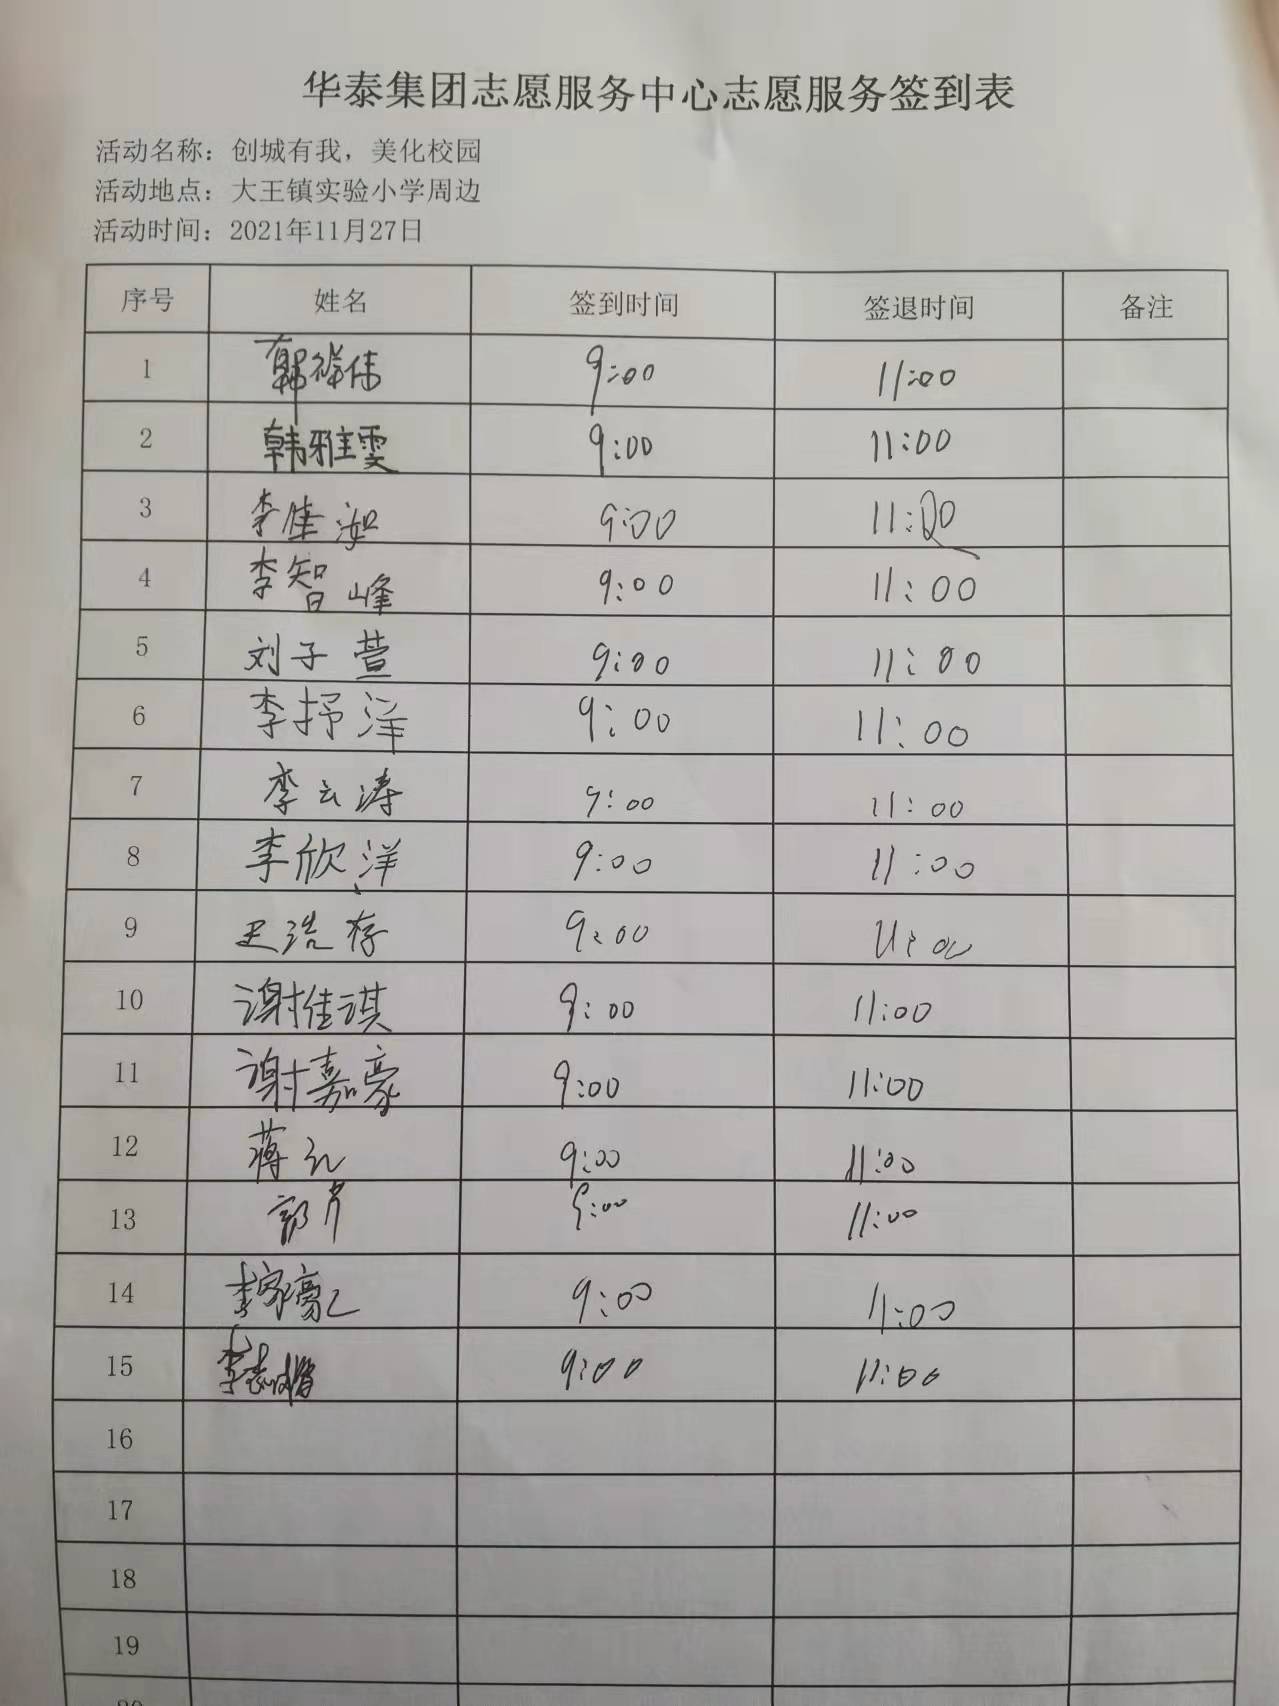 华泰集团志愿服务中心志愿服务签到表
活动名称：创城有我，美化校园
活动地点：大王镇实验小学周边
活动时间：2021年11月27日
序号 姓名 签到时间 签退时间 备注
1 韩祥伟 9:00 11:00
2 韩雅雯 9:00 11:00
3 李佳 9:00 11:00
4 李智峰 9:00 11:00
5 刘子萱 9:00 11:00
6 李抒洋 9:00 11:00
7 李云涛 9:00 11:00
8 李欣洋 9:00 11:00
9 浩存 9:00 11:00
10 谢佳淇 9:00 11:00
11 谢嘉豪 9:00 11:00
12 蒋 9:00 11:00
13 郭 9:00 11:00
14 李家豪 9:00 11:00
15 李志 9:00 11:00
16
17
18
19